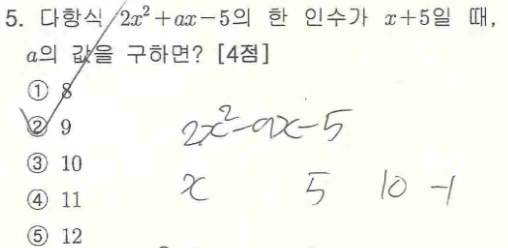 5. 다항식 2x²+ax-5의 한 인수가 x+5일 때,
a의 값을 구하면? [4점]
① 8
② 9
③ 10
④ 11
⑤ 12
2x²-ax-5
x 5 10 -1